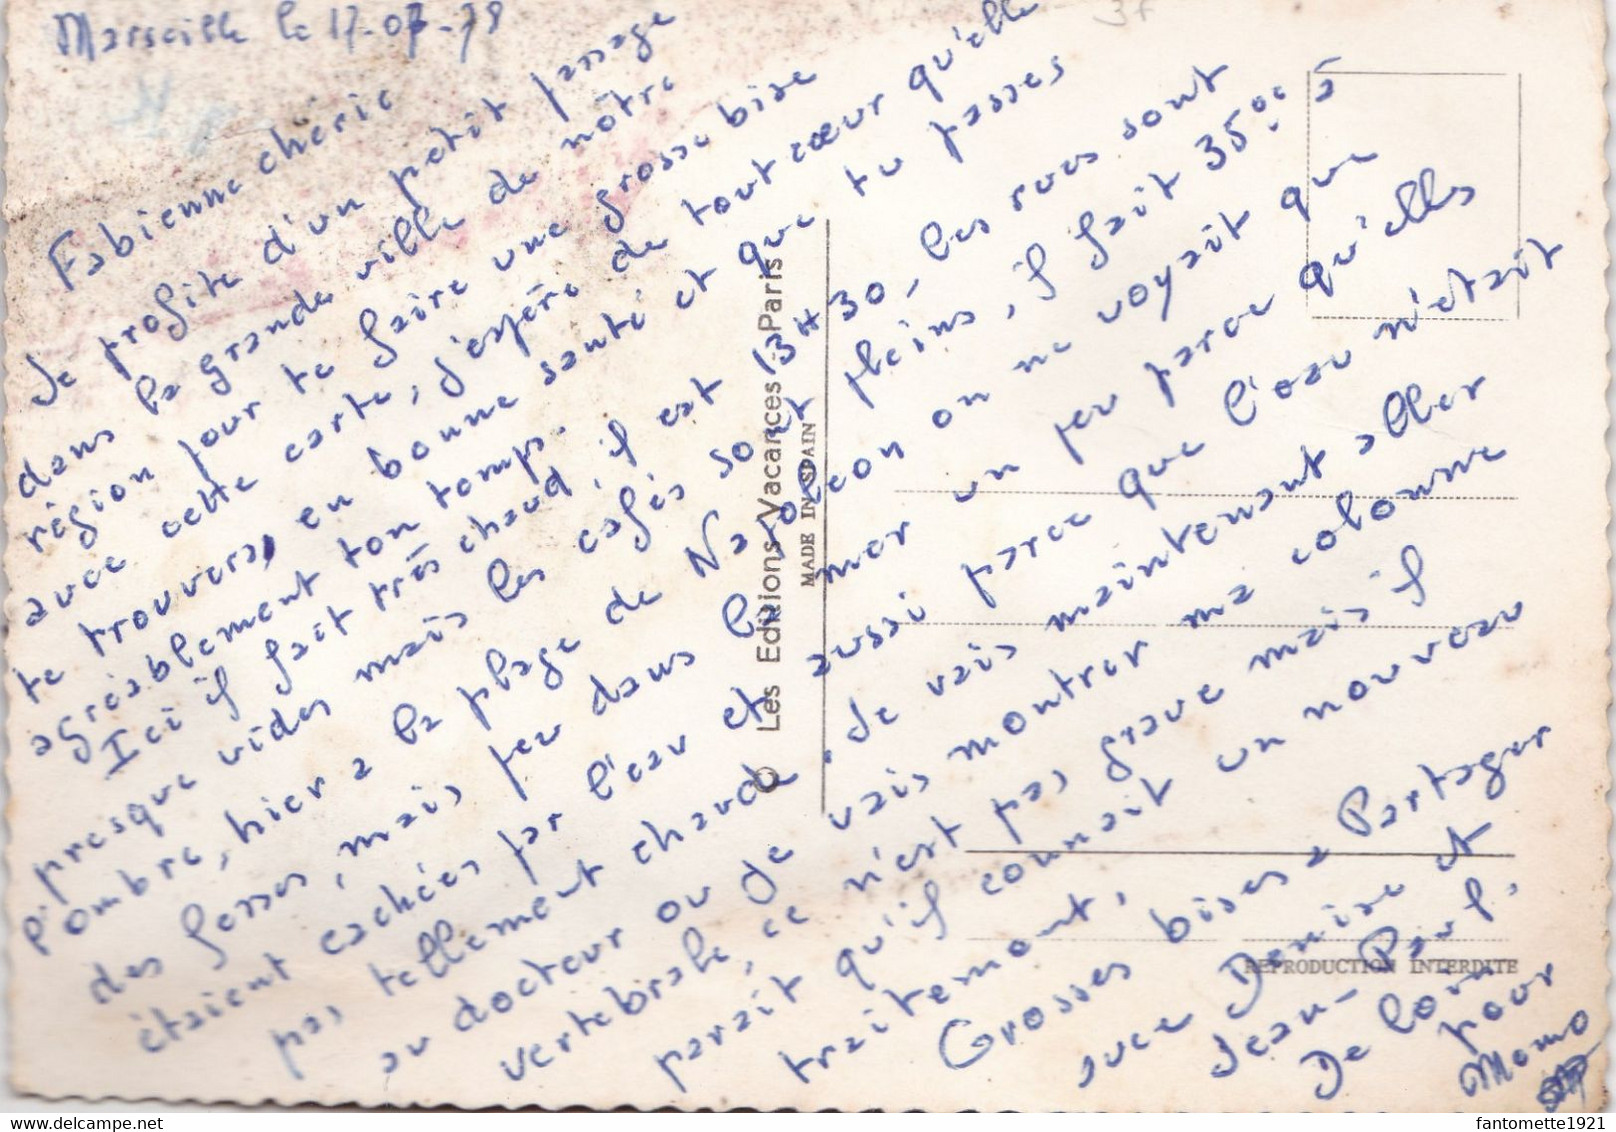 Marseille le 17-07-78
3f
Fabienne chérie
Je profite d'un petit passage
dans la grande ville de nôtre
région pour te faire une grosse bise
avec cette carte, j'espère de tout cœur qu'elle
te trouvera, en bonne santé et que tu passes
agréablement ton temps.
Ici il fait très chaud, il est 13H30, les rues sont
presque vides mais les cafés sont pleins, il fait 35° à
l'ombre, hier a la plage de Napoléon on ne voyait que
des fesses, mais peu dans la mer un peu parce qu'elles
étaient cachées par l'eau et aussi parce que l'eau n'etait
pas tellement chaude. Je vais maintenant aller
au docteur ou je vais montrer ma colonne
vertebrale, ce n'est pas grave mais il
parait qu'il connait un nouveau
traitement.
Grosses bises a Partager
avec Denise et
Jean-Paul.
De loin
pour
Momo
© Les Editions Vacances - Paris
MADE IN SPAIN
REPRODUCTION INTERDITE
fantomette1921